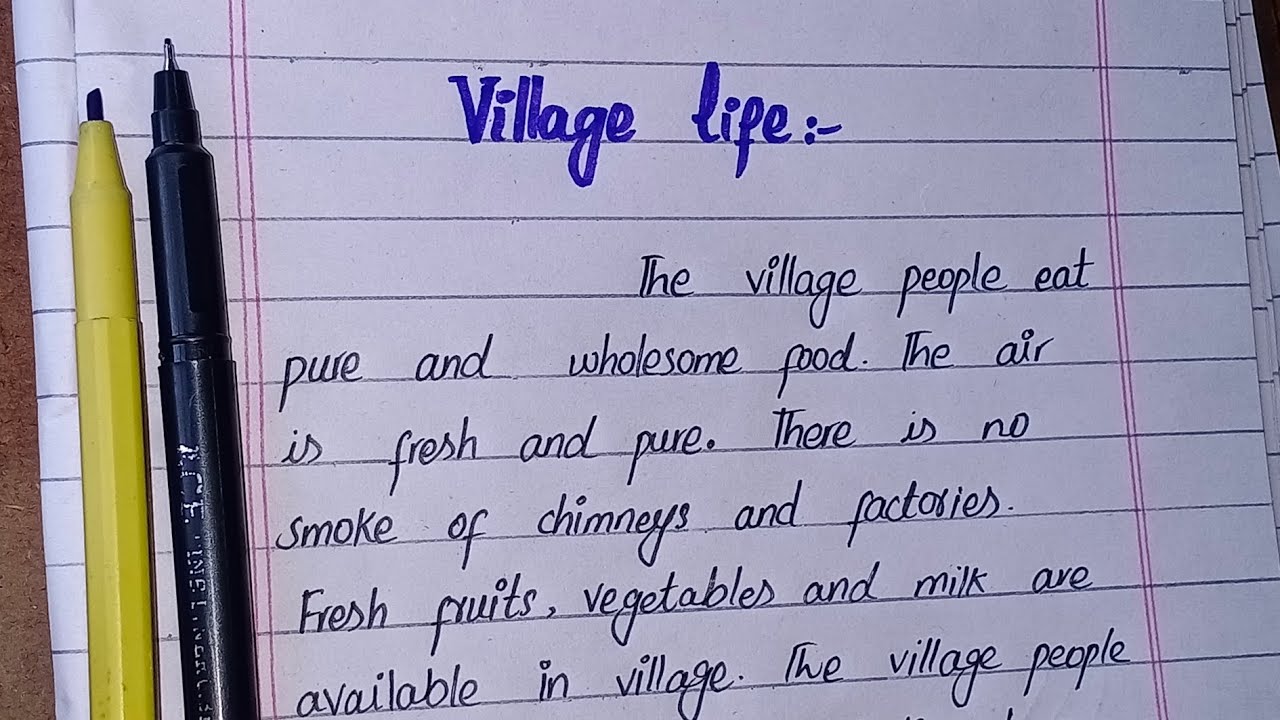 Village life:-
The village people eat
pure and wholesome food. The air
is fresh and pure. There is no
smoke of chimneys and factories.
Fresh fruits, vegetables and milk are
available in village. The village people